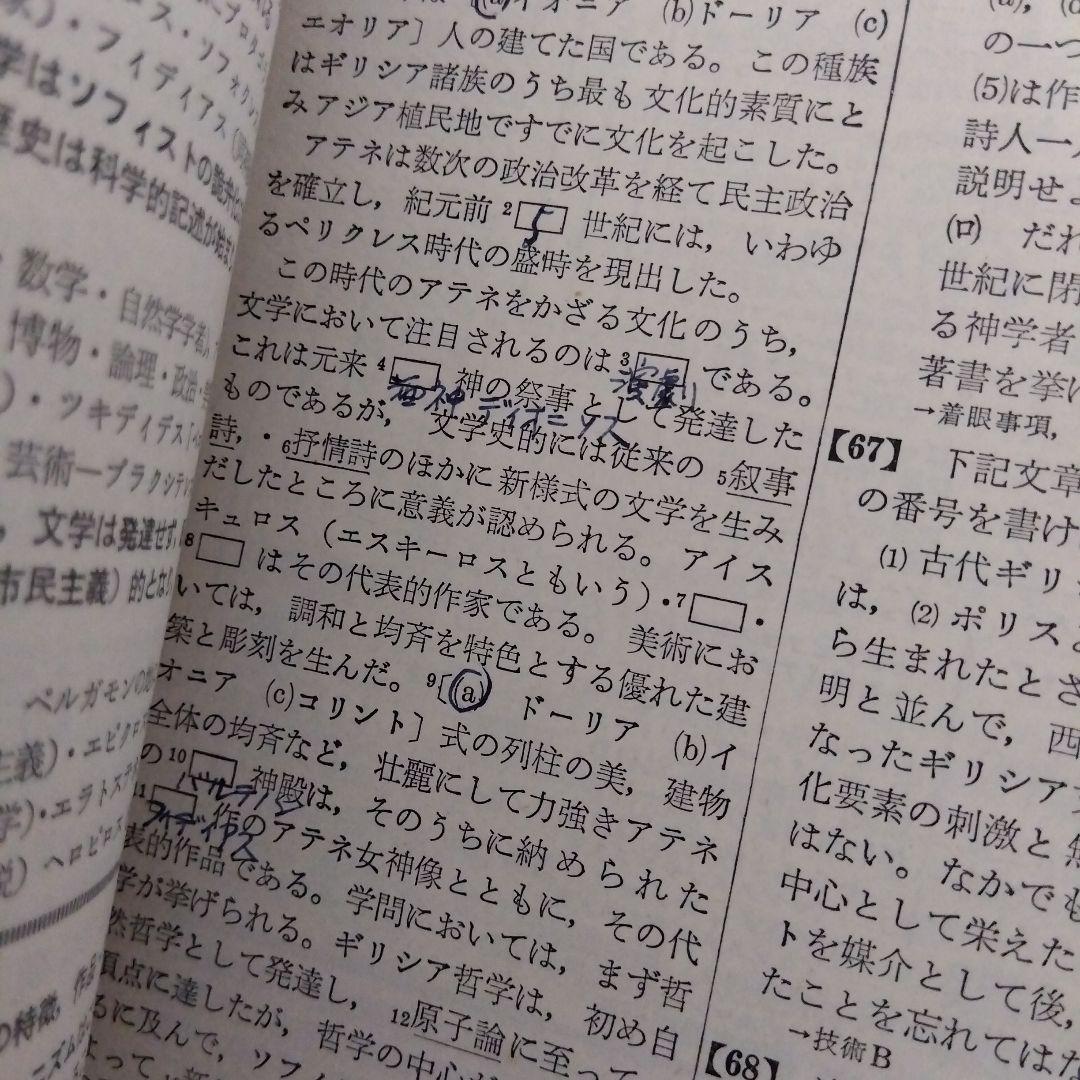 (a)イオニア (b)ドーリア (c)
エオリア〕人の建てた国である。この種族
はギリシア諸族のうち最も文化的素質にと
みアジア植民地ですでに文化を起こした。
アテネは数次の政治改革を経て民主政治
を確立し，紀元前 2 5 世紀には，いわゆ
るペリクレス時代の盛時を現出した。
この時代のアテネをかざる文化のうち，
文学において注目されるのは 3 演劇 である。
これは元来 4 神の祭事として発達した
酒神 ディオニソス
ものであるが，文学史的には従来の 5叙事
詩，・6抒情詩のほかに新様式の文学を生み
だしたところに意義が認められる。アイス
キュロス（エスキーロスともいう）・7 ・
8 はその代表的作家である。美術にお
いては，調和と均斉を特色とする優れた建
築と彫刻を生んだ。9〔(a) ドーリア (b)イ
オニア (c)コリント〕式の列柱の美，建物
全体の均斉など，壮麗にして力強きアテネ
の 10 神殿は，そのうちに納められた
パルテノン
11 作のアテネ女神像とともに，その代
フィディアス
表的作品である。学問においては，まず哲
学が挙げられる。ギリシア哲学は，初め自
然哲学として発達し，12原子論に至って
頂点に達したが，哲学の中心が
るに及んで，ソフィ
学はソフィストの詭弁
歴史は科学的記述が始ま
・数学・自然学学者
博物・論理・政治・
・ツキディデス
芸術―プラクシテ
，文学は発達せず，
市民主義）的とな
ペルガモンの
主義）・エピクロ
学）・エラトス
説）ヘロピロス
の特徴，作品
の一つ
(5)は作
詩人一人
説明せよ
(ロ) だれ
世紀に閉
る神学者
著書を挙げ
→着眼事項，
【67】 下記文章
の番号を書け
(1) 古代ギリシ
は，(2) ポリス
ら生まれたとさ
明と並んで，西
なったギリシア
化要素の刺激と
はない。なかでも
中心として栄えた
トを媒介として後，
たことを忘れてはな
→技術B
【68】